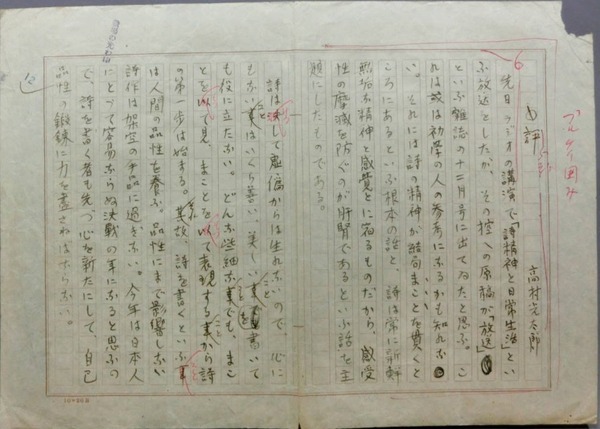 小評
高村光太郎
先日ラジオの講演で「詩精神と日常生活」とい
ふ放送をしたが、その控への原稿が「放送」
といふ雑誌の十二月号に出てゐたと思ふ。こ
れは或は初学の人の参考になるかも知れな
い。それには詩の精神が結局まことを貫くと
ころにあるといふ根本の話と、詩は常に新鮮
無垢な精神と感覚とに宿るものだから、感受
性の摩滅を防ぐのが肝腎であるといふ話を主
題にしたものである。
詩は決して虚偽からは生れないので、心に
もない事はいくら善い、美しい事を書いて
も役に立たない。どんな些細な事でも、まこ
とを以て見、まことを以て表現する事から詩
の第一歩は始まる。其故、詩を書くといふ事
は人間の品性を養ふ。品性にまで影響しない
詩作は架空の手品に過ぎない。今年は日本人
にとつて容易ならぬ決戦の年になると思ふの
で、詩を書く者も先づ心を新たにして、自己
品性の鍛錬に力を盡さねばならない。
6
12
10×20